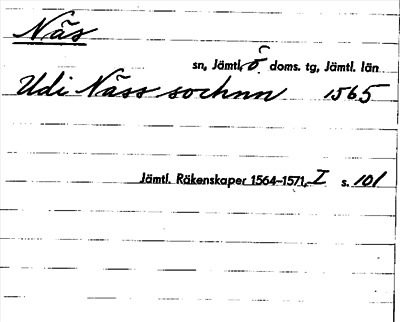 Näs
sn, Jämtl. ö. doms. tg, Jämtl. län
Udi Näss sochnn 1565
Jämtl. Räkenskaper 1564–1571, I s. 101